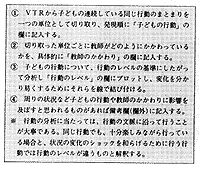 ① VTRから子どもの連続している同じ行動のまとまりを
一つの単位として切り取り、発現順に「子どもの行動」の
欄に記入する。
② 切り取った単位ごとに教師がどのようにかかわっている
かを、具体的に「教師のかかわり」の欄に記入する。
③ 子どもの行動について、行動のレベルの基準にしたがっ
て分析し「行動のレベル」の欄にプロットし、変化を分か
り易くするためにそれらを線で結び付ける。
④ 周りの状況など子どもの行動や教師のかかわりに影響を
及ぼすと思われるものがあれば備考欄（欄外）に記入する。
※ 行動の分析に当たっては、行動の文脈に沿って行うこと
が大事である。同じ行動でも、十分楽しみながら行ってい
る場合と、状況の変化のショックを和らげるために行う行
動では行動のレベルが違うものと解釈する。